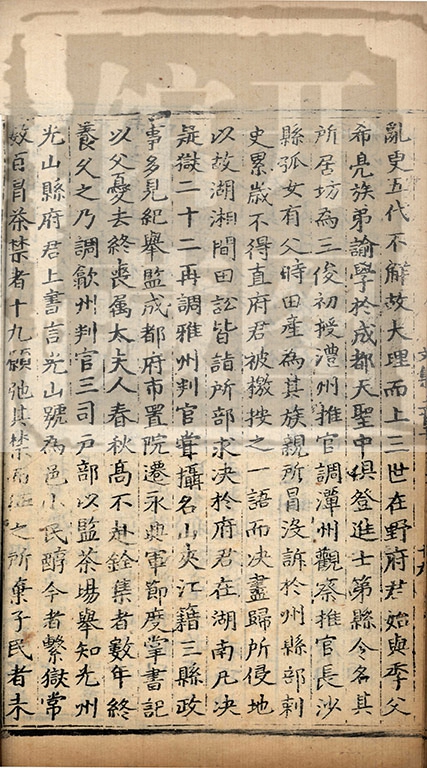 亂更五代不解故大理而上三世在野府君始與季父
希亮族弟諭學於成都天聖中俱登進士第縣令名其
所居坊為三俊初授澧州推官調潭州觀察推官長沙
縣孤女有父時田產為其族親所冒沒訴於州縣部刺
史累歲不得直府君被檄按之一語而决盡歸所侵地
以故湖湘間田訟皆詣所部求决於府君在湖南凡决
疑獄二十二再調雅州判官嘗攝名山夾江籍三縣政
事多見紀舉監成都府市置院遷永興軍節度掌書記
以父憂去終喪属太夫人春秋髙不赴銓集者數年終
養父之乃調歙州判官三司戸部以監茶場舉知光州
光山縣府君上書言光山號為邑小民醇今者繫獄常
數百冒茶禁者十九願弛其禁 之所棄子民者未